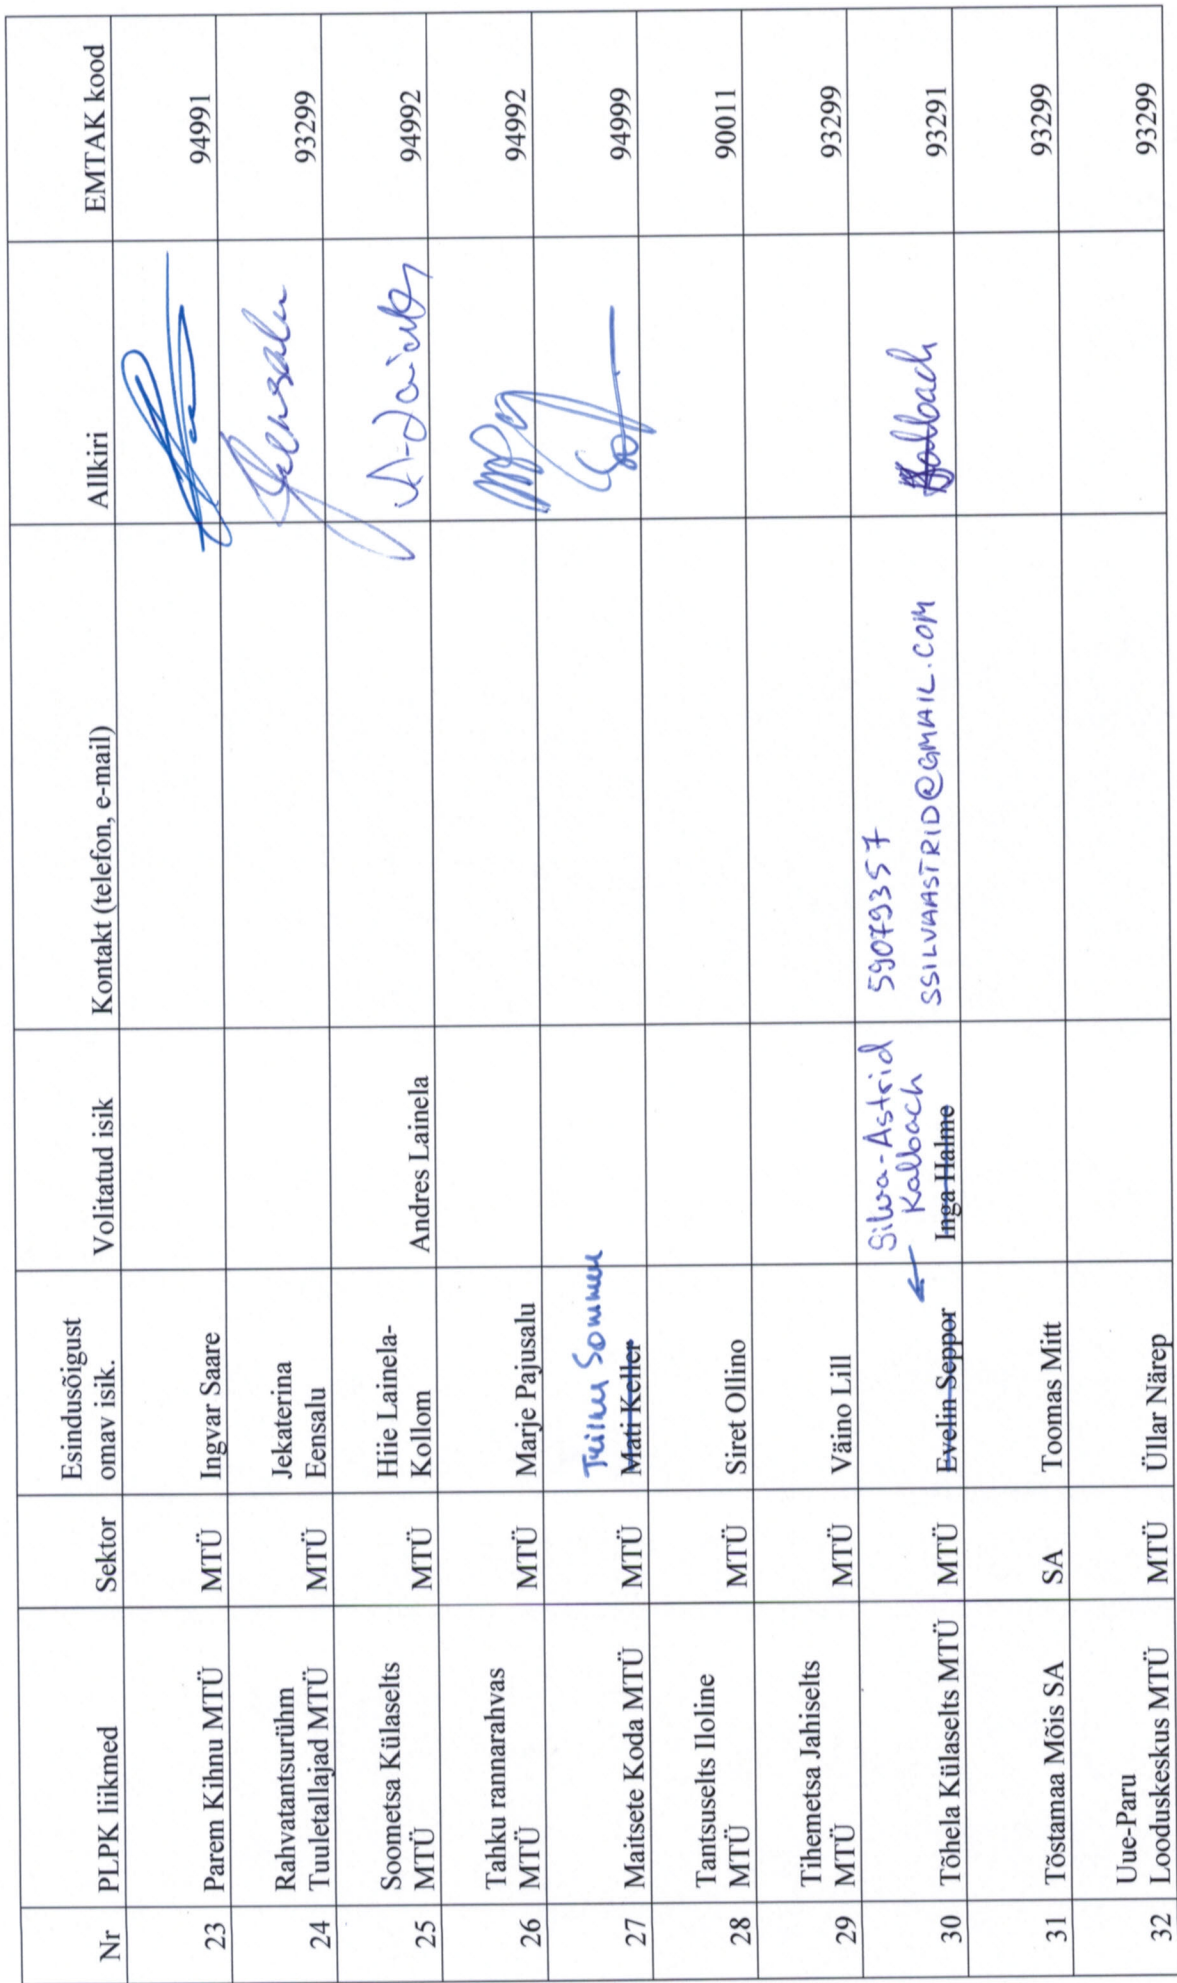 Nr PLPK liikmed Sektor Esindusõigust omav isik. Volitatud isik Kontakt (telefon, e-mail) Allkiri EMTAK kood
23 Parem Kihnu MTÜ MTÜ Ingvar Saare 94991
24 Rahvatantsurühm Tuuletallajad MTÜ MTÜ Jekaterina Eensalu 93299
25 Soometsa Külaselts MTÜ MTÜ Hiie Lainela-Kollom Andres Lainela 94992
26 Tahku rannarahvas MTÜ MTÜ Marje Pajusalu 94992
27 Maitsete Koda MTÜ MTÜ Mati Keller 94999
28 Tantsuselts Iloline MTÜ MTÜ Siret Ollino 90011
29 Tihemetsa Jahiselts MTÜ MTÜ Väino Lill 93299
30 Tõhela Külaselts MTÜ MTÜ Evelin Seppor ← Silva-Astrid Kalbach Inga Halme 59079357 SSILVAASTRID@GMAIL.COM Kalbach 93291
31 Tõstamaa Mõis SA SA Toomas Mitt 93299
32 Uue-Paru Looduskeskus MTÜ MTÜ Üllar Närep 93299